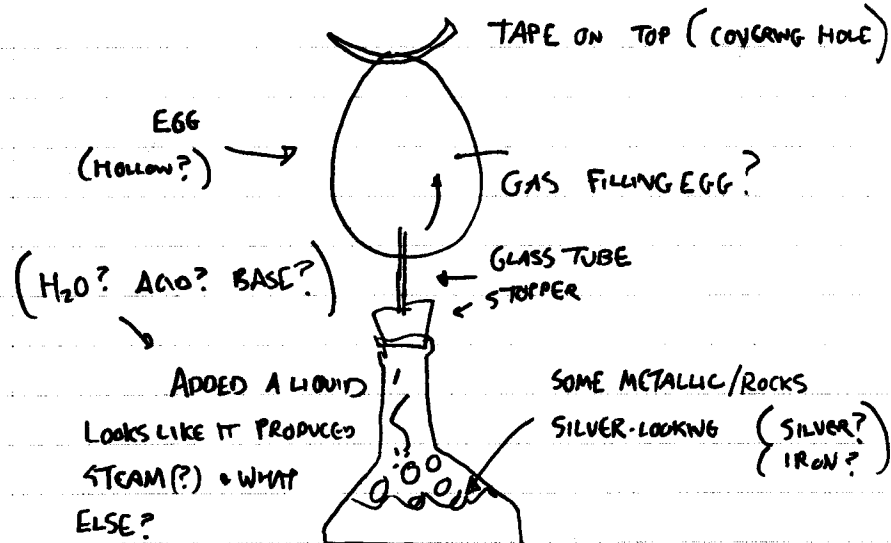 TAPE ON TOP (COVERING HOLE)
EGG
(HOLLOW?)
GAS FILLING EGG?
GLASS TUBE
STOPPER
(H₂O? ACID? BASE?)
ADDED A LIQUID
LOOKS LIKE IT PRODUCED
STEAM(?) & WHAT
ELSE?
SOME METALLIC/ROCKS
SILVER-LOOKING (SILVER?
IRON?)